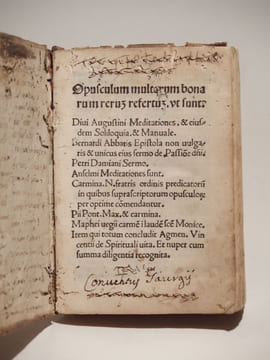 Opusculum multorum bona
rum reruȝ refertuȝ. vt sunt:
Diui Augustini Meditationes. & eius-
dem Soliloquia. & Manuale.
Bernardi Abbatis Epistola non vulga-
ris & vnicus eius sermo de Passiōe dñi.
Petri Damiani Sermo.
Anselmi Meditationes sunt.
Carmina. N. fratris ordinis predicatorū
in quibus suprascriptorum opusculorū
per optime cōmendantur.
Pii Pont. Max. & carmina.
Maphei vegii carmē ī laudē scē Monice.
Item qui totum concludit Agmen. Vin
centii de Spirituali vita. Et nuper cum
summa diligentia recognita.
Conuentus